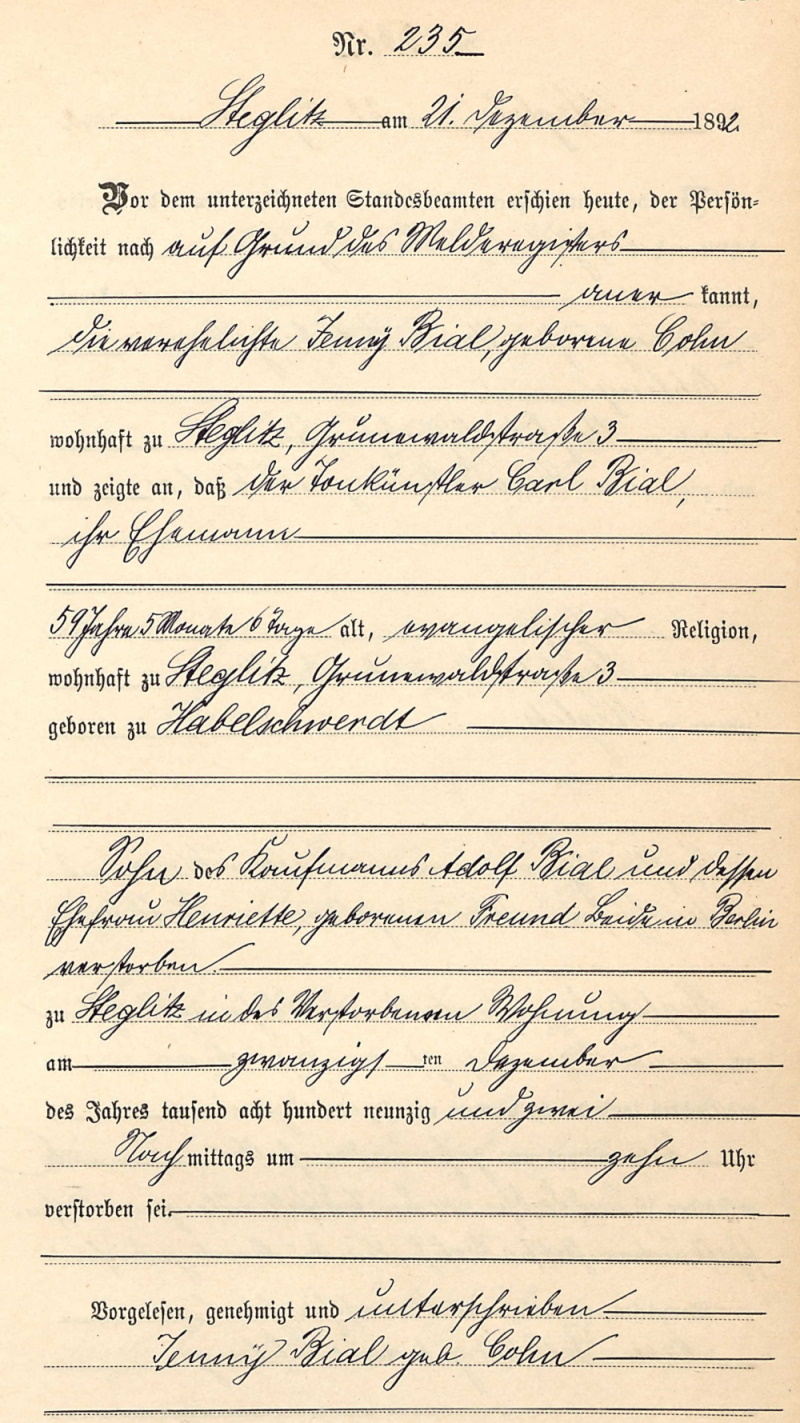 Nr. 235
Steglitz am 21. Dezember 1892.
Vor dem unterzeichneten Standesbeamten erschien heute, der Persön-
lichkeit nach auf Grund des Melderegisters
aner kannt,
die verehelichte Jenny Bial, geborene Cohn
wohnhaft zu Steglitz, Grunewaldstraße 3
und zeigte an, daß der Tonkünstler Carl Bial,
ihr Ehemann
59 Jahre 5 Monate 6 Tage alt, evangelischer Religion,
wohnhaft zu Steglitz, Grunewaldstraße 3
geboren zu Habelschwerdt
Sohn des Kaufmanns Adolf Bial und dessen
Ehefrau Henriette, geborenen Freund beide in Berlin
verstorben.
zu Steglitz in des Verstorbenen Wohnung
am zwanzigs ten Dezember
des Jahres tausend acht hundert neunzig und zwei
Nach mittags um zehn Uhr
verstorben sei.
Vorgelesen, genehmigt und unterschrieben
Jenny Bial geb. Cohn